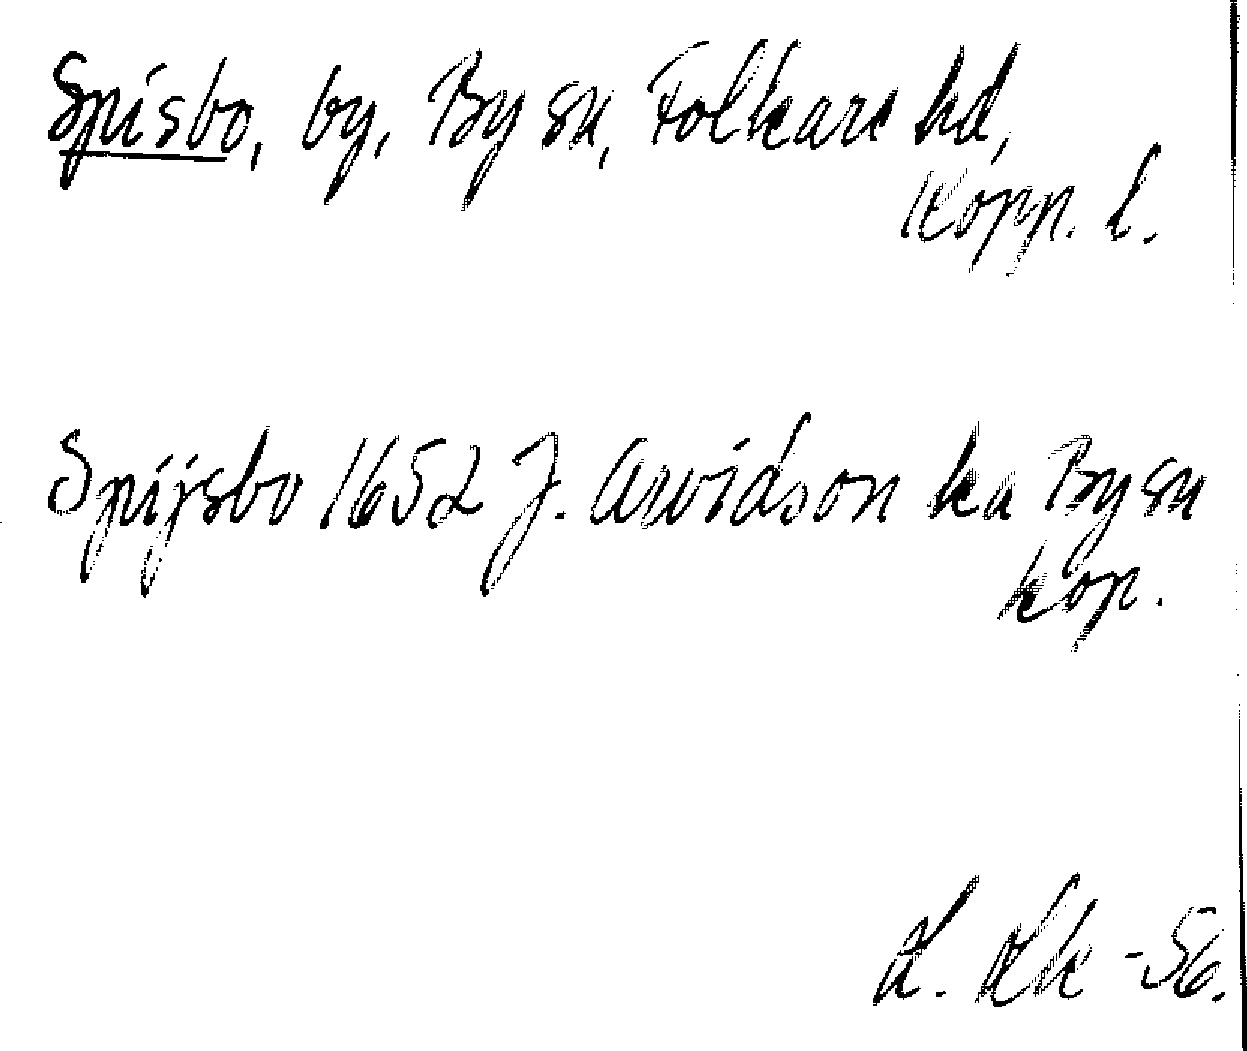 Spisbo, by, By sn, Folkare hd,
Kopp. l.
Spijsbo 1652 J. Arvidson ka By sn
kop.
-56.